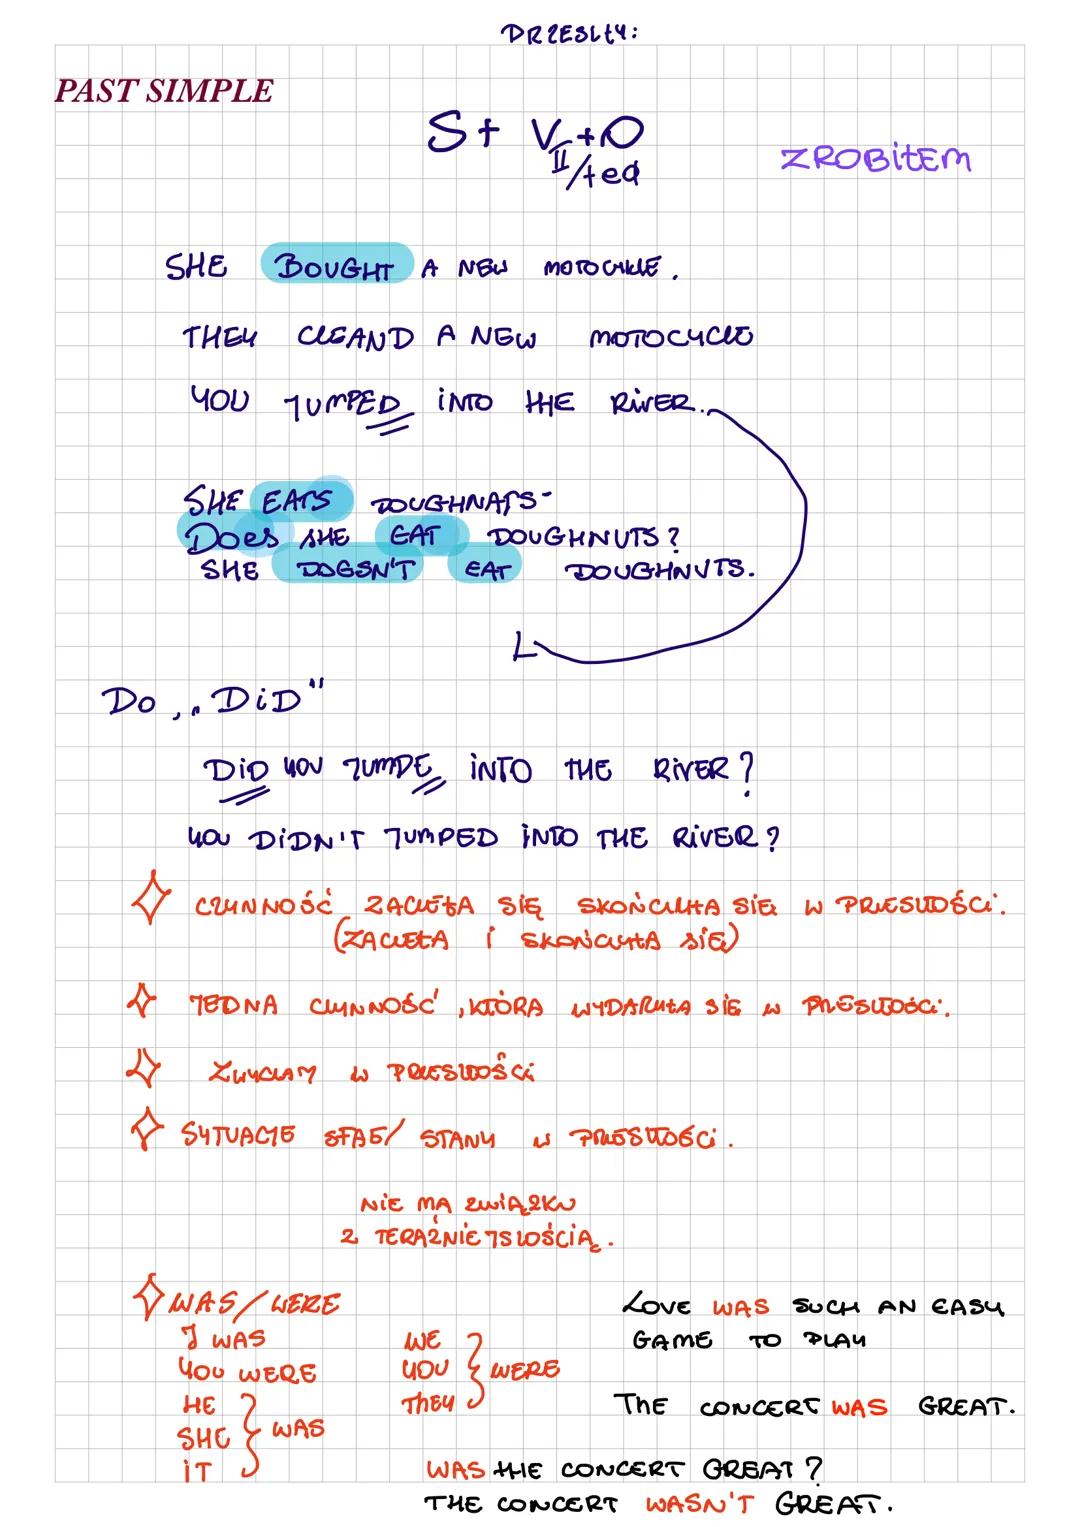 PRZESZŁY:
PAST SIMPLE
S + V II/+ed + O
ZROBIŁEM
SHE BOUGHT A NEW MOTOCYKLE.
THEY CLEAND A NEW MOTOCYCLE
YOU JUMPED INTO THE RIVER.
SHE EATS DOUGHNATS
DOES SHE EAT DOUGHNUTS?
SHE DOESN'T EAT DOUGHNUTS.
DO „DID"
DID YOU JUMPE INTO THE RIVER?
YOU DIDN'T JUMPED INTO THE RIVER?
CZYNNOŚĆ ZACZĘŁA SIĘ SKOŃCZYŁA SIĘ W PRZESZŁOŚCI.
(ZACZĘŁA I SKOŃCZYŁA SIĘ)
JEDNA CZYNNOŚĆ, KTÓRA WYDARZYŁA SIĘ W PRZESZŁOŚCI.
ZWYCZAJ W PRZESZŁOŚCI
SYTUACJE STAŁE/ STANY W PRZESZŁOŚCI.
NIE MA ZWIĄZKU
Z TERAŹNIEJSZOŚCIĄ.
WAS/WERE
I WAS
YOU WERE
HE
SHE WAS
IT
WE
YOU WERE
THEY
LOVE WAS SUCH AN EASY
GAME TO PLAY
THE CONCERT WAS GREAT.
WAS THE CONCERT GREAT?
THE CONCERT WASN'T GREAT.